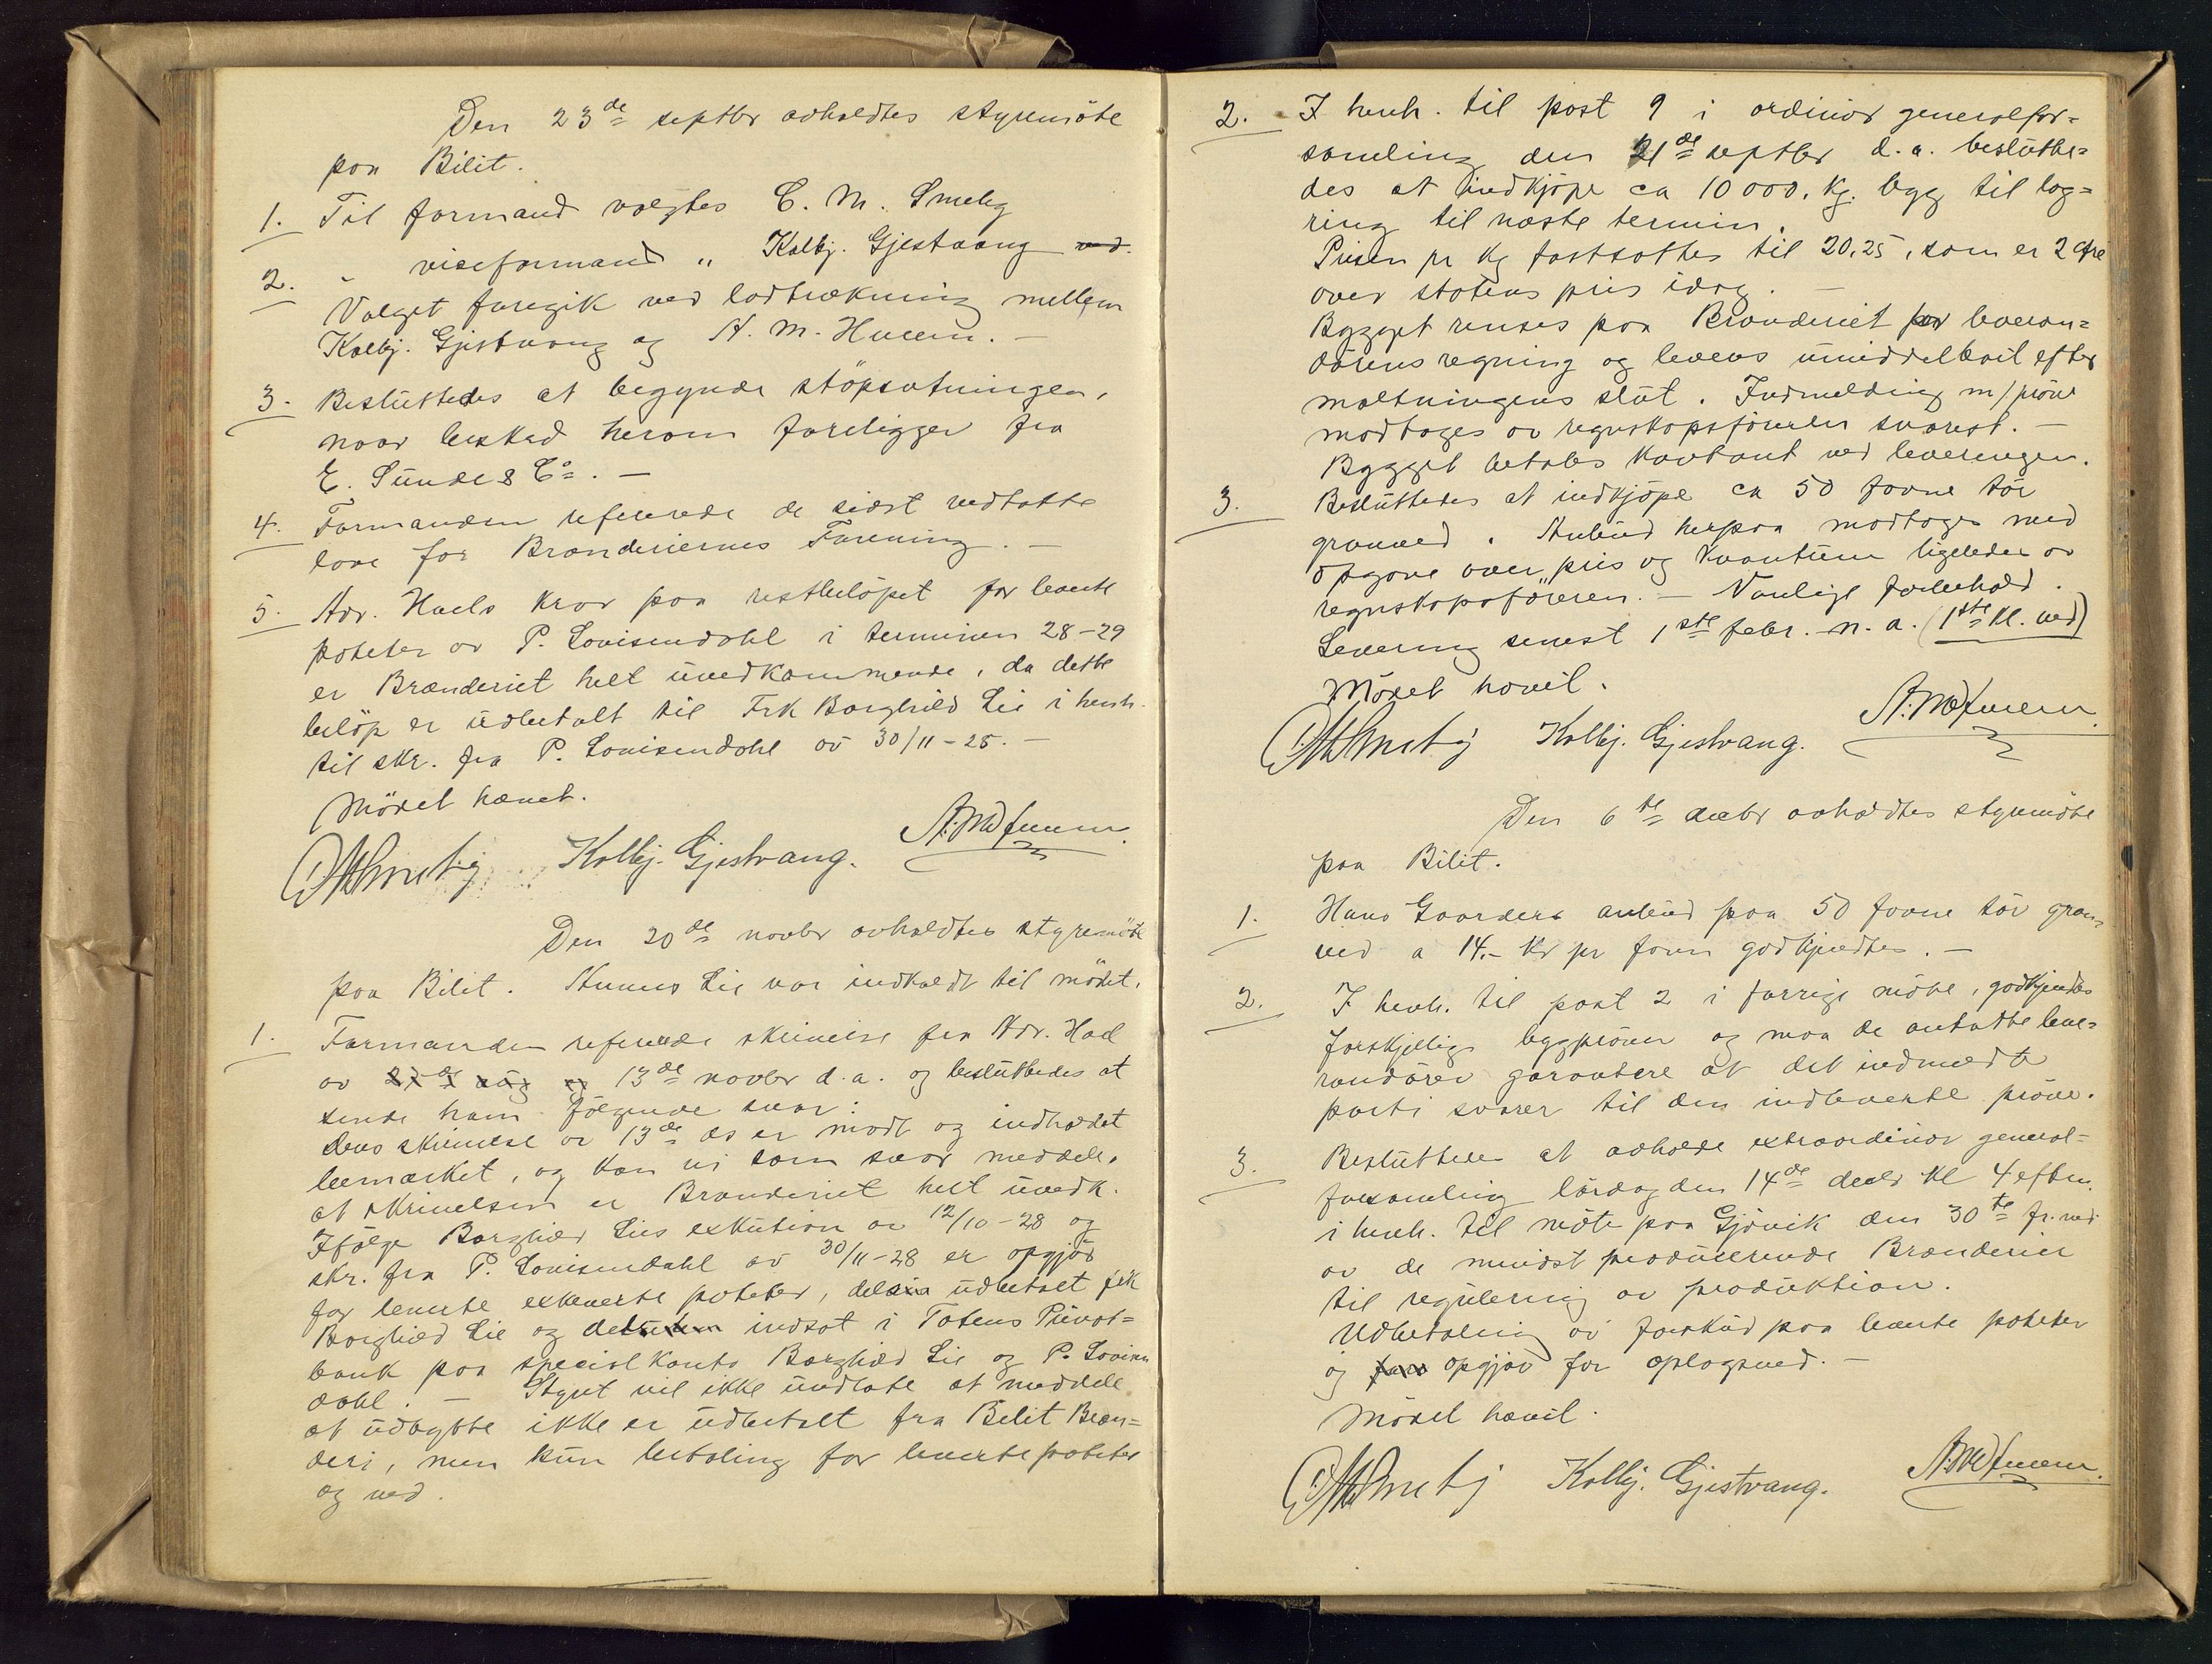 Den 23de septbr avholdtes styremöte
paa Bilit.
1. Til formand valgtes C. M. Smeby
2. " viseformand " Kolbj. Gjestvang ved.
Valget foregik ved lodtrækning mellem
Kolbj. Gjestvang og A. M. Hveem. –
3. Besluttedes at begynde stöpsætningen,
naar besked herom foreligger fra
E. Sunde & Co. –
4. Formanden refererede de sidst vedtatte
love for Brænderiernes Forening. –
5. Adv. Hoels krav paa restbelöpet for leverte
poteter av P. Lovisendahl i terminen 28-29
er Brænderiet helt uvedkommende, da dette
belöp er utbetalt til Frk Borghild Lie i henh.
til skr. fra P. Lovisendahl av 30/11-28. –
Mödet hævet.
CMSmeby Kolbj. Gjestvang. A. M. Hveem.
Den 20de novbr avholdtes styremöte
paa Bilit. Hans Lie var indkaldt til mödet.
1. Formanden refererede skrivelse fra Adr. Hoel
av 13de novbr d.a. og besluttedes at
sende ham fölgende svar:
Deres skrivelse av 13de ds er modt og indholdet
bemærket, og kan vi som svar meddele,
at skrivelsen er Brænderiet helt uvedk.
Ifölge Borghild Lies exkution av 12/10-28 og
skr. fra P. Lovisendahl av 30/11-28 er opgjör
for leverte poteter, dels utbetalt frk
Borghild Lie og dels indsat i Totens Privat=
bank paa specialkonto Borghild Lie og P. Lovisen
dahl. – Styret vil ikke undlate at meddele
at utbytte ikke er utbetalt fra Bilit Bræn=
deri, men kun betaling for leverte poteter
og ved.
2. I henh. til post 9 i ordinær generalfor=
samling den 21de septbr d.a. beslutte=
des at indkjöpe ca 10000. kg. bygg til lag=
ring til næste termin.
Prisen pr kg fastsattes til 20,25, som er 2 öre
over statens pris idag. –
Bygget renses paa Brænderiet for leveran=
dörens regning og leveres umiddelbart efter
maltningens slut. Indmelding m/pröve
modtages av regnskapsförerer snarest. –
Bygget betales kontant ved leveringen.
3. Besluttedes at indkjöpe ca 50 favne tör
granved. Anbud herpaa modtages med
opgave over pris og kvantum ligeledes av
regnskapsföreren. – Vanlige forbehold.
Levering senest 1ste febr. n. a. (1ste kl. ved)
Mödet hævet.
CMSmeby Kolbj. Gjestvang. A. M. Hveem.
Den 6te decbr avholdtes styremöte
paa Bilit.
1. Hans Gaarders anbud paa 50 favne tör gran=
ved a 14.- kr pr favn godkjendtes. –
2. I henh. til post 2 i forrige möte, godkjendtes
forskjellige byggpröver og maa de antatte leve=
randörer garantere at det indmeldte
parti svarer til den indleverte pröve.
3. Besluttedes at avholde extraordinær general=
forsamling lördag den 14de decbr kl 4 eftm.
i henh. til möte paa Gjövik den 30te fr. md
av de mindst producerende Brænderier
til regulering av produktion.
Utbetaling av forskud paa leverte poteter
og opgjör for oplagsved. –
Mödet hævet.
CMSmeby Kolbj. Gjestvang. A. M. Hveem.